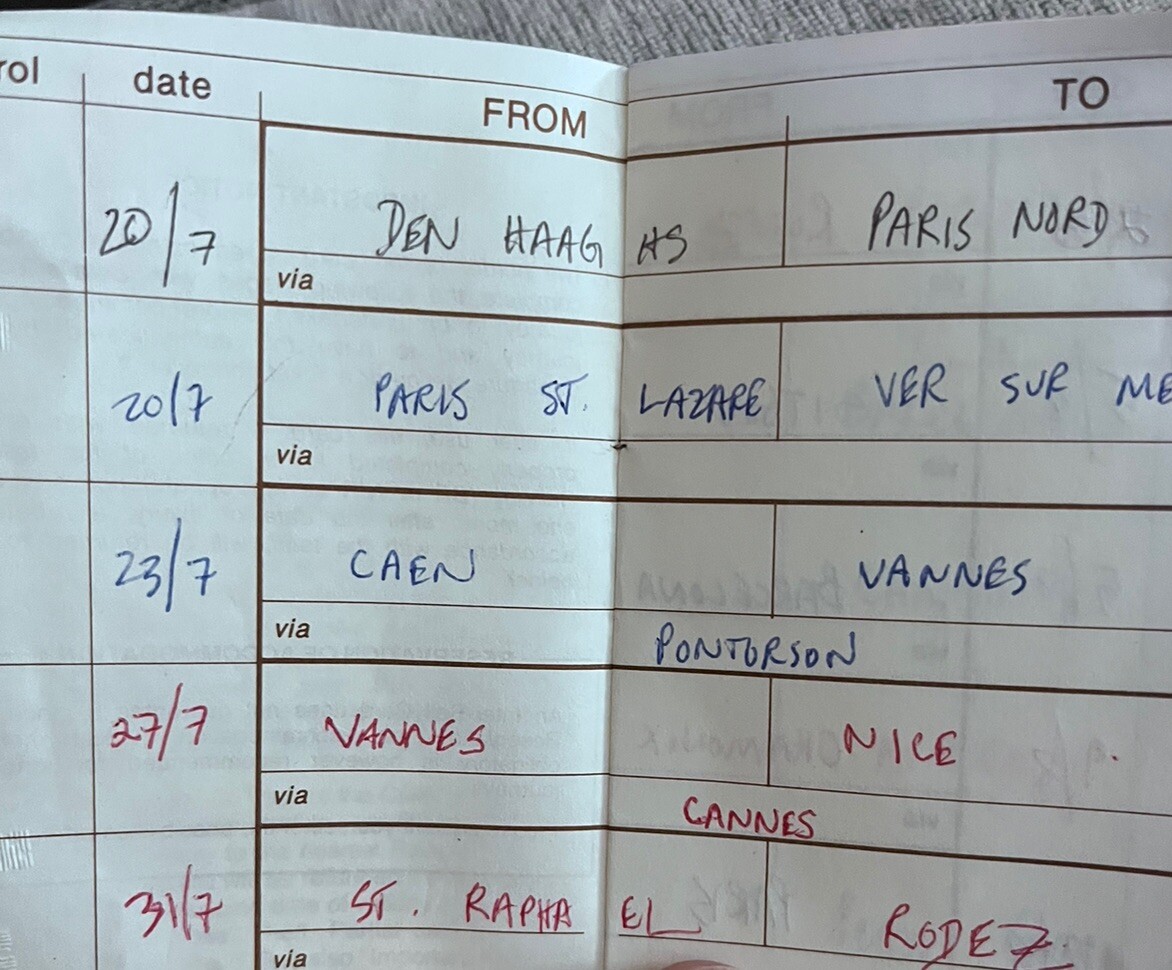 rol date FROM TO
20/7 DEN HAAG HS PARIS NORD
via
20/7 PARIS ST. LAZARE VER SUR ME
via
23/7 CAEN VANNES
via PONTORSON
27/7 VANNES NICE
via CANNES
31/7 ST. RAPHAEL RODEZ
via